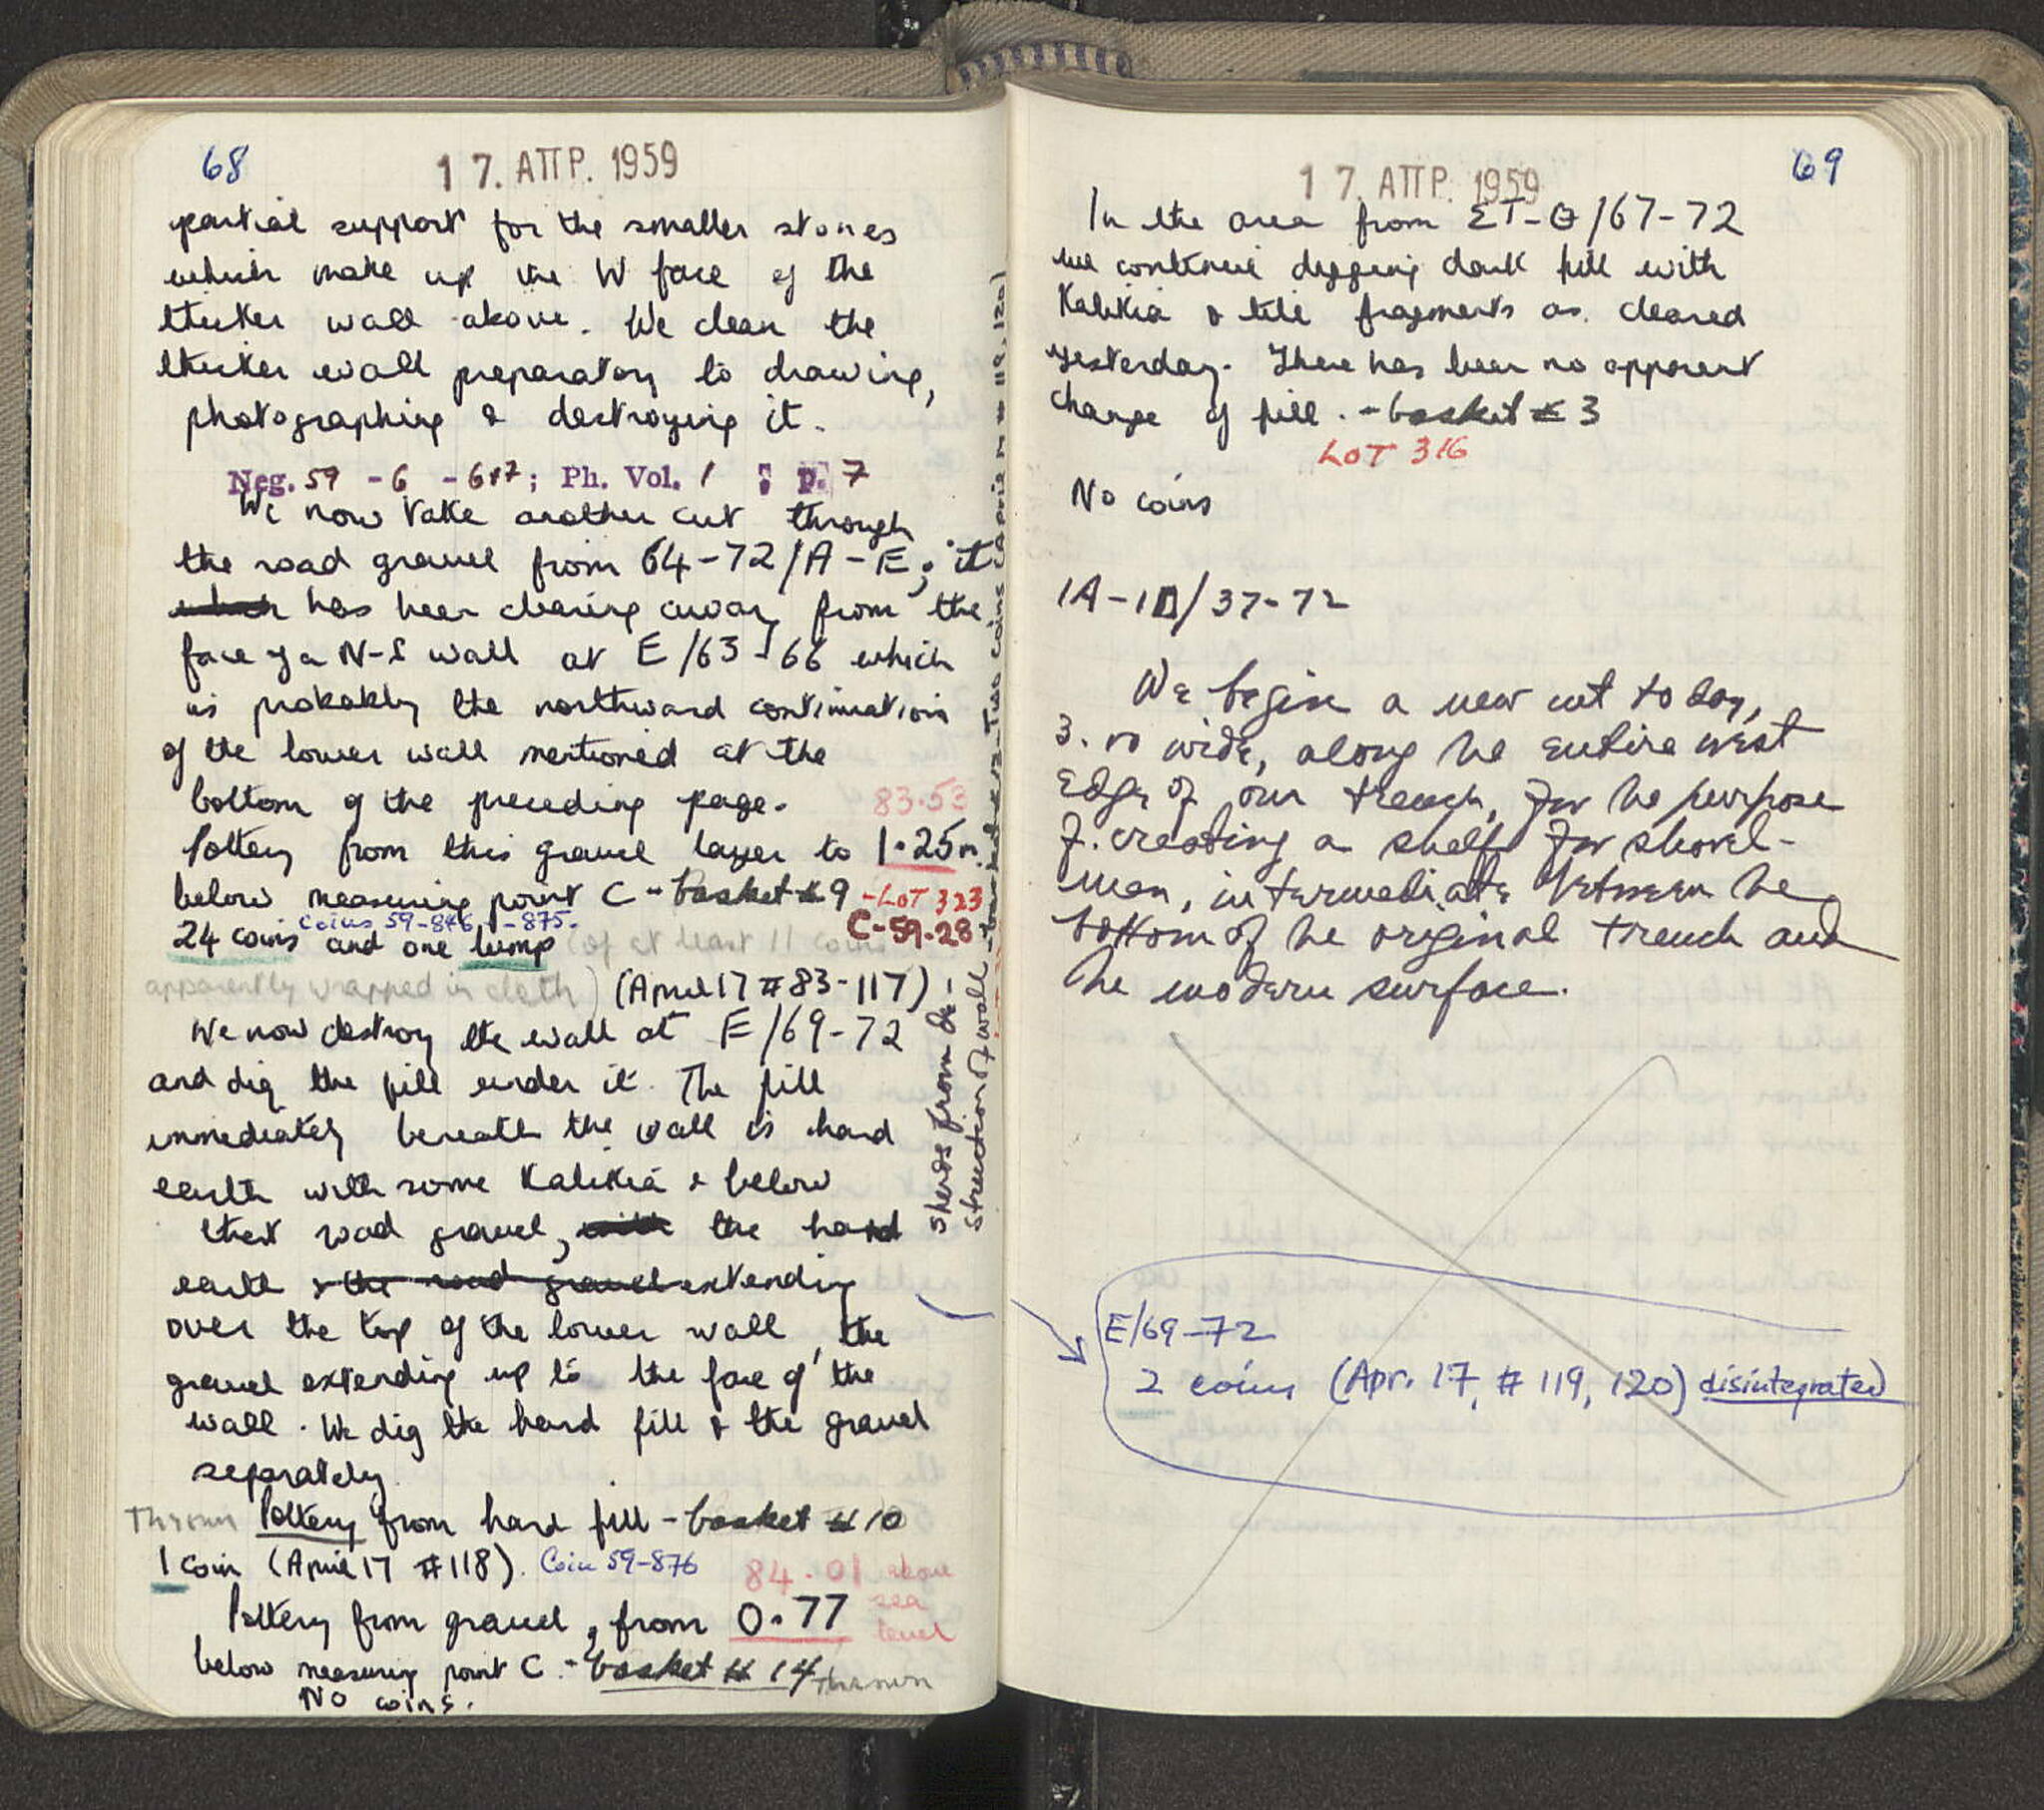 68
17. ΑΠΡ. 1959
partial support for the smaller stones
which make up the W face of the
thicker wall above. We clean the
thicker wall preparatory to drawing,
photographing & destroying it.
Neg. 59 - 6 - 6+7; Ph. Vol. 1 : p. 7
We now take another cut through
the road gravel from 64-72/A-E; it
has been clearing away from the
face of a N-S wall at E/63-66 which
is probably the northward continuation
of the lower wall mentioned at the
bottom of the preceding page.
83.53
Pottery from this gravel layer to 1.25m.
below measuring point C - basket #9 - LOT 323
Coins 59-846 - 875.
C-59-28
24 coins and one lump (of at least 11 coins
apparently wrapped in cloth) (April 17 #83-117)
We now destroy the wall at E/69-72
and dig the fill under it. The fill
immediately beneath the wall is hard
earth with some Kalikia & below
that road gravel, with the hard
earth & the road gravel extending
over the top of the lower wall, the
gravel extending up to the face of the
wall. We dig the hard fill & the gravel
separately.
Thrown Pottery from hard fill - basket #10
1 coin (April 17 #118). Coin 59-876
84.01 above
sea
level
Pottery from gravel, from 0.77
below measuring point C. - basket #14 thrown
No coins.
sherds from de-
struction of wall - Two coins (April 17 #119, 120)
69
17. ΑΠΡ. 1959
In the area from ΣT-Θ/67-72
we continue digging dark fill with
Kalikia & tile fragments as cleared
yesterday. There has been no apparent
change of fill. - basket #3
LOT 316
No coins
1A-1D/37-72
We begin a new cut today,
3. m wide, along the entire west
edge of our trench, for the purpose
of creating a shelf for shovel-
men, intermediate between the
bottom of the original trench and
the modern surface.
E/69-72
2 coins (Apr. 17, #119, 120) disintegrated